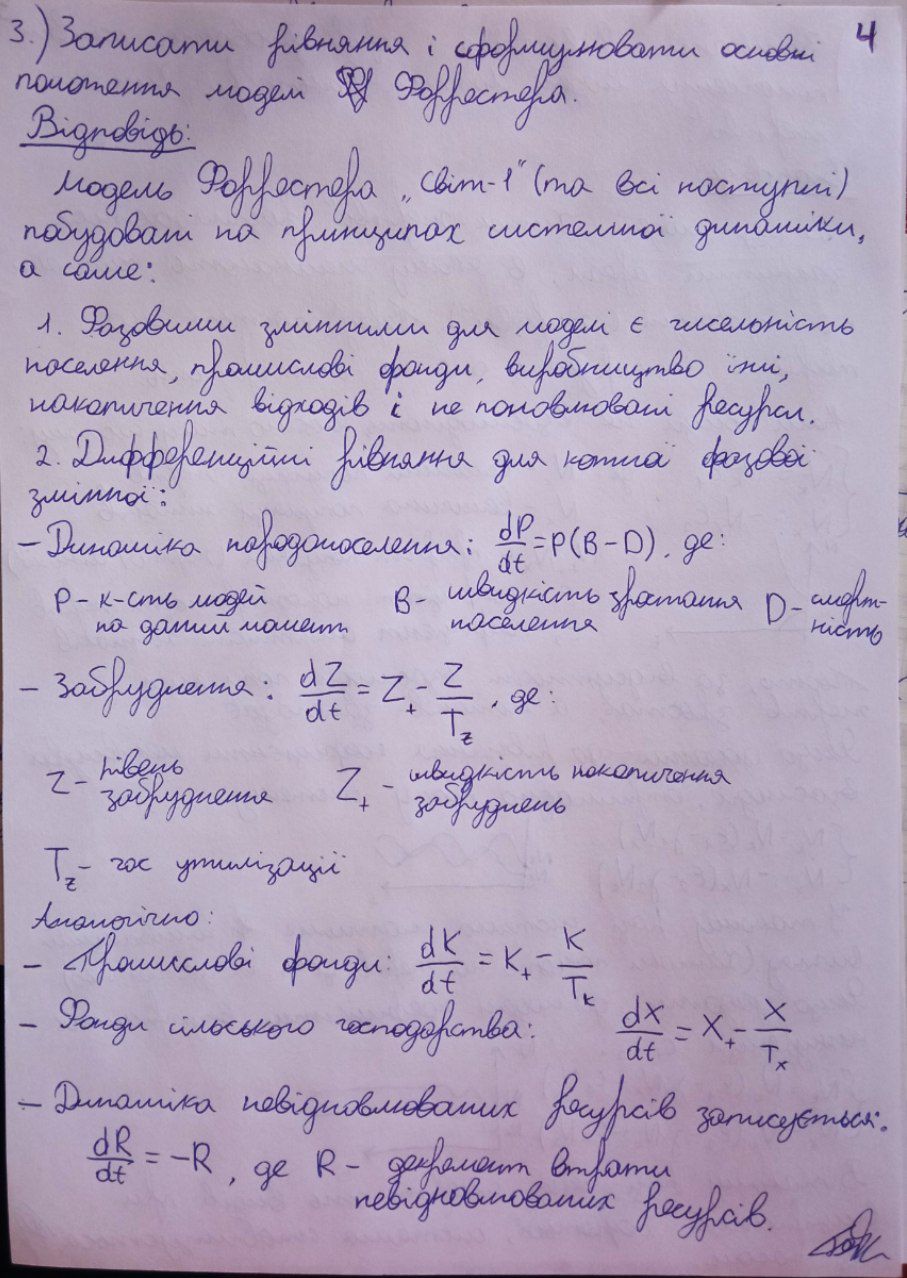 4
3.) Записати рівняння і сформулювати основні
положення моделі Форрестера.
Відповідь:
Модель Форрестера „Світ-1" (та всі наступні)
побудовані на принципах системної динаміки,
а саме:
1. Фазовими змінними для моделі є чисельність
населення, промислові фонди, виробництво їжі,
накопичення відходів і не поновлювані ресурси.
2. Дифференційні рівняння для кожної фазової
змінної:
– Динаміка народонаселення: dP/dt = P(B – D), де:
P – к-сть людей на даний момент B – швидкість зростання населення D – смертність
– Забруднення: dZ/dt = Z₊ – Z/T_z, де:
Z – рівень забруднення Z₊ – швидкість накопичення забруднень
T_z – час утилізації
Аналогічно:
– Промислові фонди: dK/dt = K₊ – K/T_k
– Фонди сільського господарства: dX/dt = X₊ – X/T_x
– Динаміка невідновлюваних ресурсів записується:
dR/dt = –R, де R – декремент втрати
невідновлюваних ресурсів.